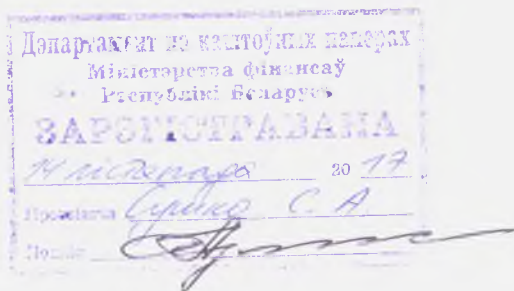 Дэпартамент па каштоўных паперах
Міністэрства фінансаў
Рэспублікі Беларусь
ЗАРЭГІСТРАВАНА
14 лістапада 20 17
Прозвішча С. А
Подпіс